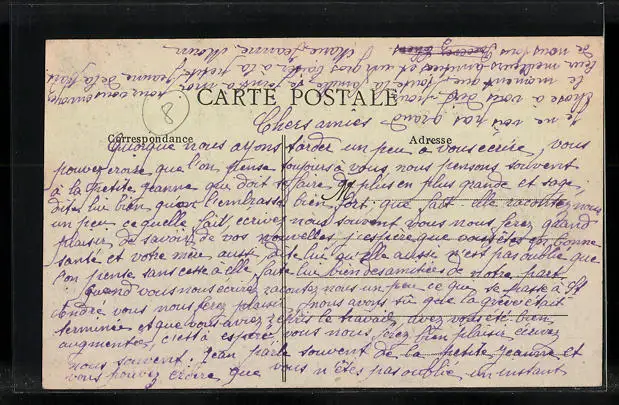 8
CARTE POSTALE
Correspondance
Adresse
Chers amies
Quoique nous ayons tarder un peu a vous ecrire, vous
pouvez croire que l'on pense toujours à vous, nous pensons souvent
à la petite jeanne qui doit se faire de plus en plus grande et sage,
dites lui bien qu'on l'embrasse bien fort. que fait elle racontez nous
un peu ce quelle fait ecrivez nous souvent vous nous ferez grand
plaisir de savoir de vos nouvelles j'espère que vous etes en bonne
santé et votre mère aussi, dite lui qu'elle aussi n'est pas oublié que
l'on pense sans cesse à elle, faite lui bien des amitiées de notre part
Quand vous nous ecrirez racontez nous un peu ce que se passe à St
André vous nous ferez plaisir nous avons su que la grève était
terminée et que vous aviez repris le travail, avez vous été bien
augmentés, c'est à espérer, vous nous ferez bien plaisir ecrivez
nous souvent. Jean parle souvent de la petite jeanne et
vous pouvez croire que vous n'êtes pas oublié un instant
je ne voi pas grand
chose a vous dire pour
le moment que toute la famille se joint a moi pour vous envoyer
leur meilleurs amitiées et un gros baiser à la petite jeanne de la part
de nous tous
Marie Jeanne